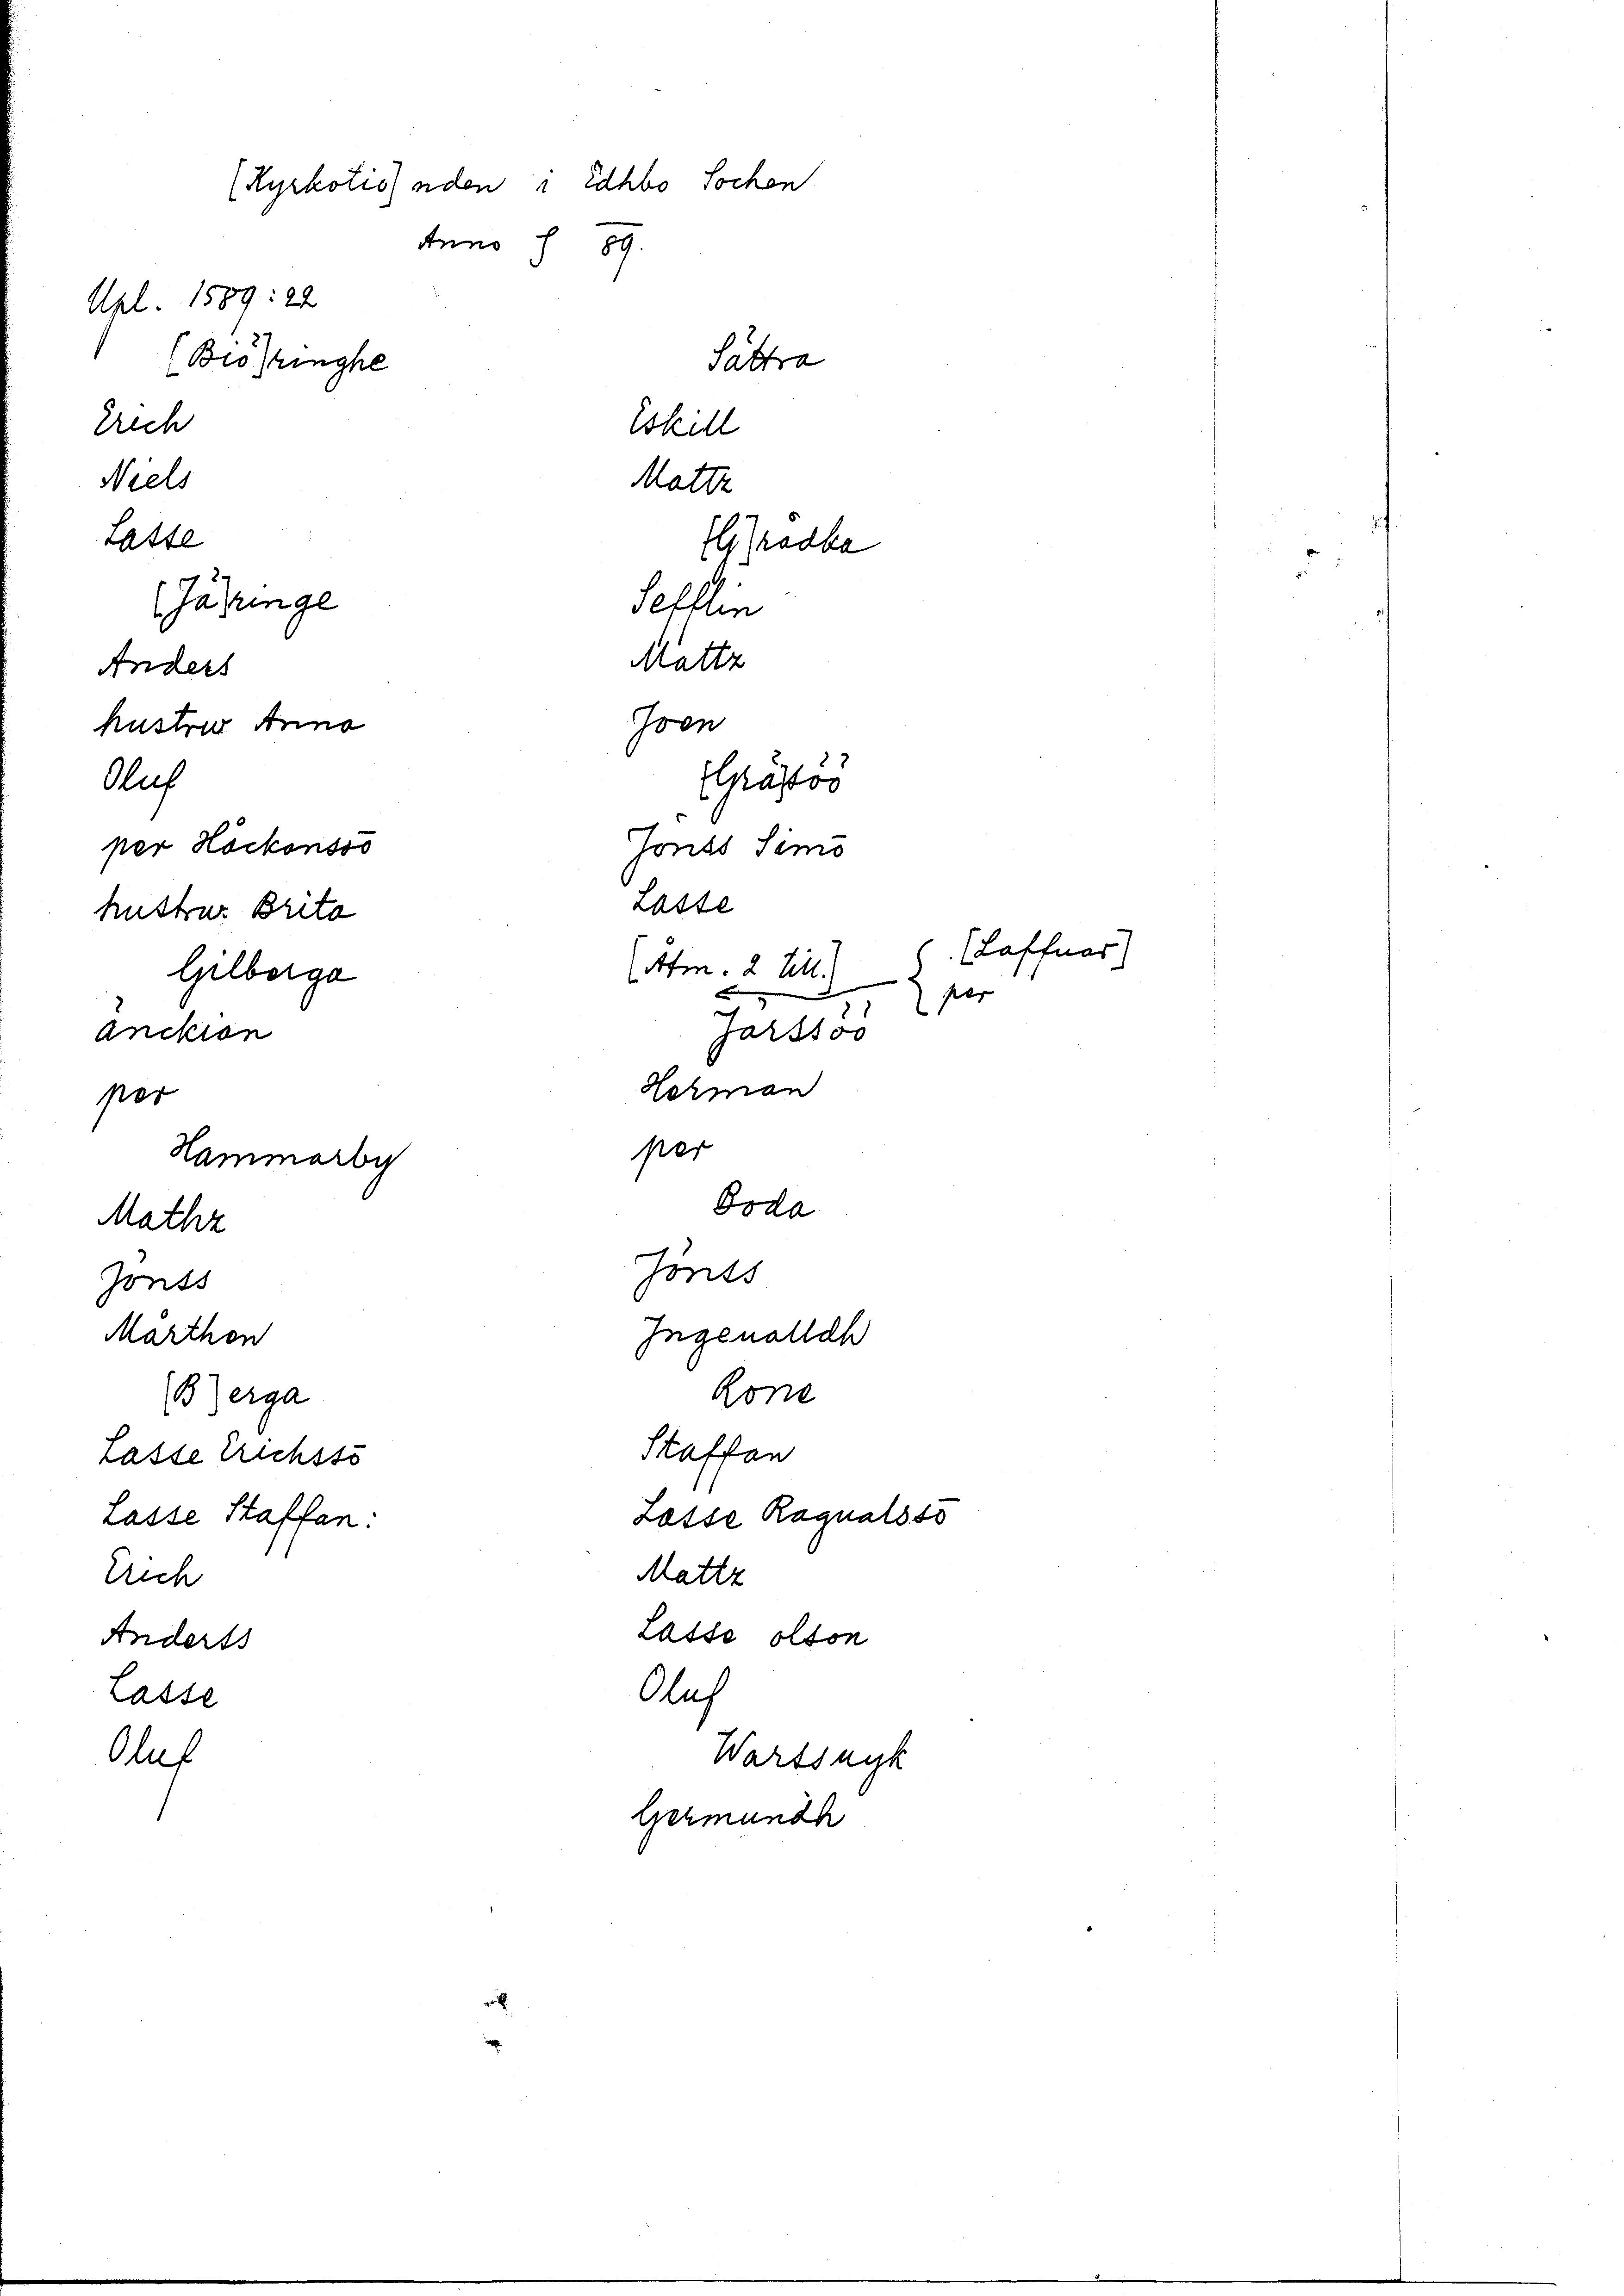 (Kyrkotio) nden i Edhbo Sochen
Anno f 89.
Upl. 1589:22
(Biö)ringhe
Erich
Niels
Lasse
(Jä)ringe
Anders
hustrw Anna
Oluf
per Håckonssö
hustrw Brita
Gilberga
änckian
per
Hammarby
Mathz
Jönss
Mårthen
(B)erga
Lasse Erichssō
Lasse Staffan:
Erich
Anderss
Lasse
Oluf
Sättra
Eskill
Mattz
(G)rådka
Sefflin
Mattz
Joen
(Grä)söö
Jönss Simō
Lasse
(Åtm. 2 till.) { (Laffuas)
per
Järssöö
Herman
per
Boda
Jönss
Ingeualldh
Rone
Staffan
Lasse Ragualssō
Mattz
Lasse olson
Oluf
Warssuyk
Germundh